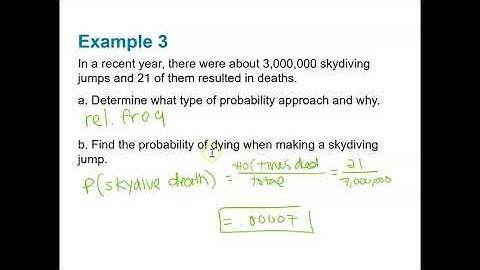 Example 3
In a recent year, there were about 3,000,000 skydiving
jumps and 21 of them resulted in deaths.
a. Determine what type of probability approach and why.
rel. freq
b. Find the probability of dying when making a skydiving
jump.
P(skydive death) = # of times died / total = 21 / 3,000,000
= .00007